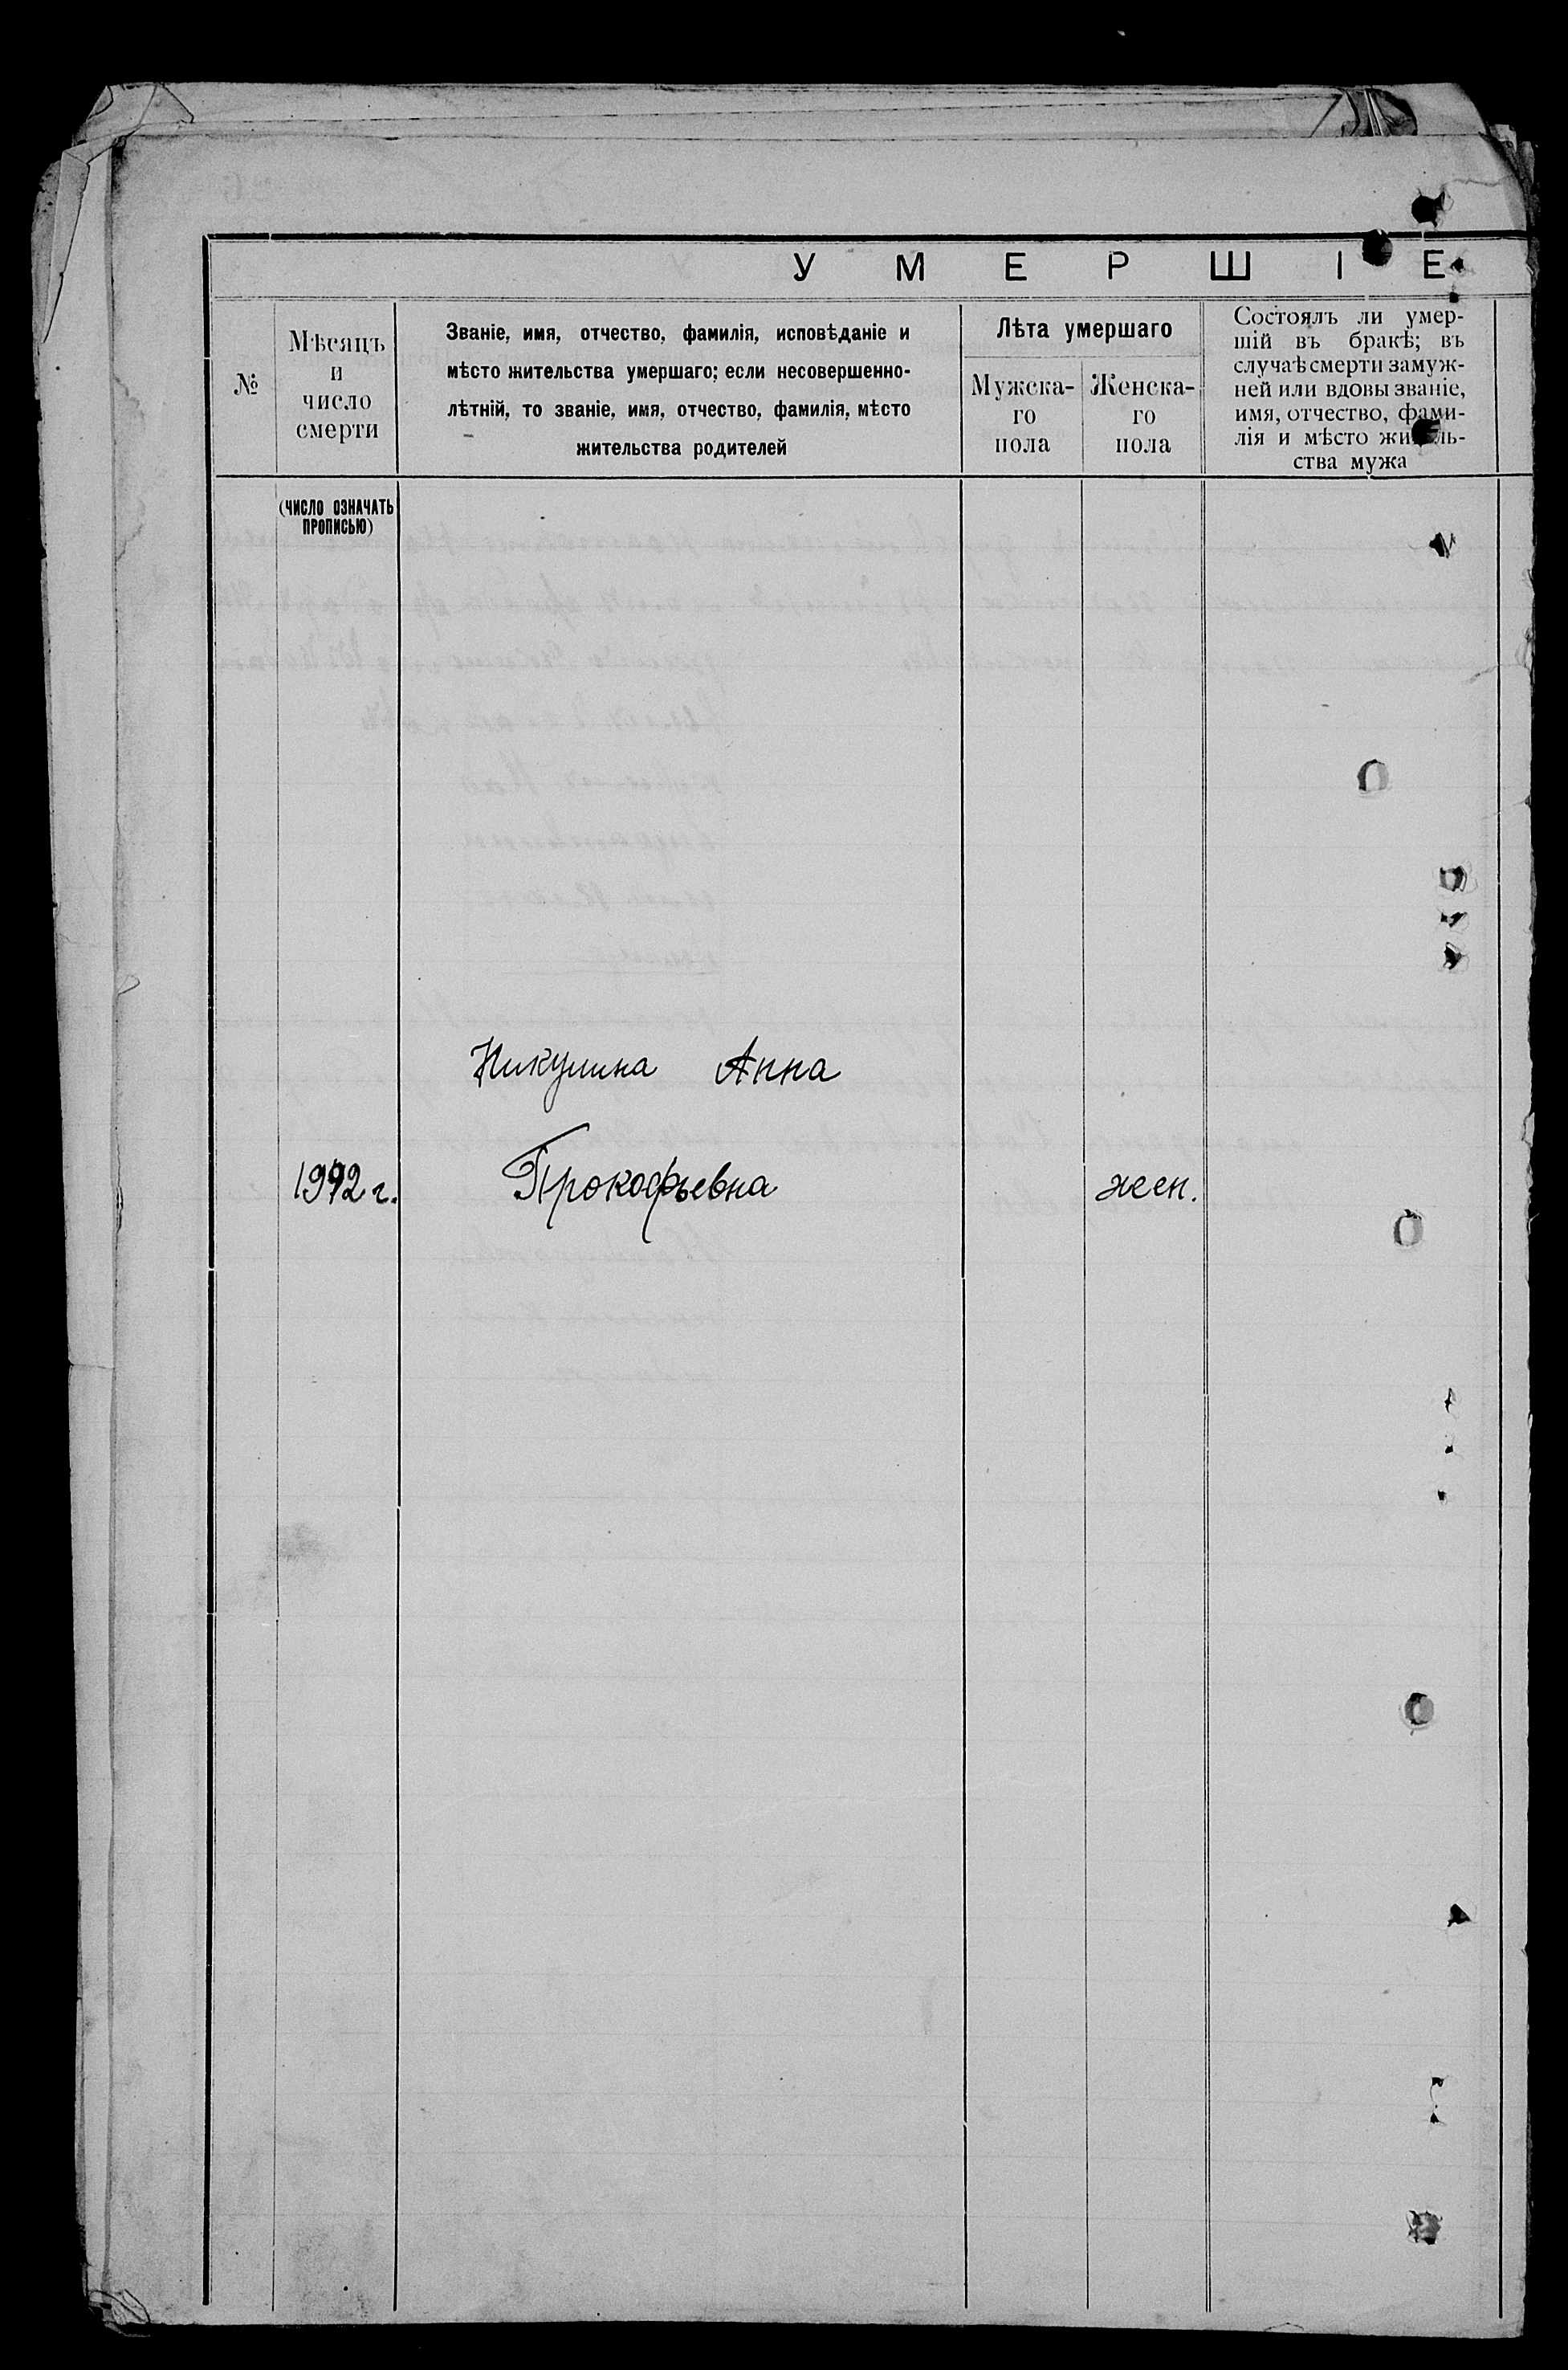 УМЕРШІЕ
№
Мѣсяцъ
и
число
смерти
Званіе, имя, отчество, фамилія, исповѣданіе и
мѣсто жительства умершаго; если несовершенно-
лѣтній, то званіе, имя, отчество, фамилія, мѣсто
жительства родителей
Лѣта умершаго
Мужска-
го
пола
Женска-
го
пола
Состоялъ ли умер-
шій въ бракѣ; въ
случаѣ смерти замуж-
ней или вдовы званіе,
имя, отчество, фами-
лія и мѣсто житель-
ства мужа
(ЧИСЛО ОЗНАЧАТЬ
ПРОПИСЬЮ)
Никулина Анна
1942 г. Прокофьевна жен.